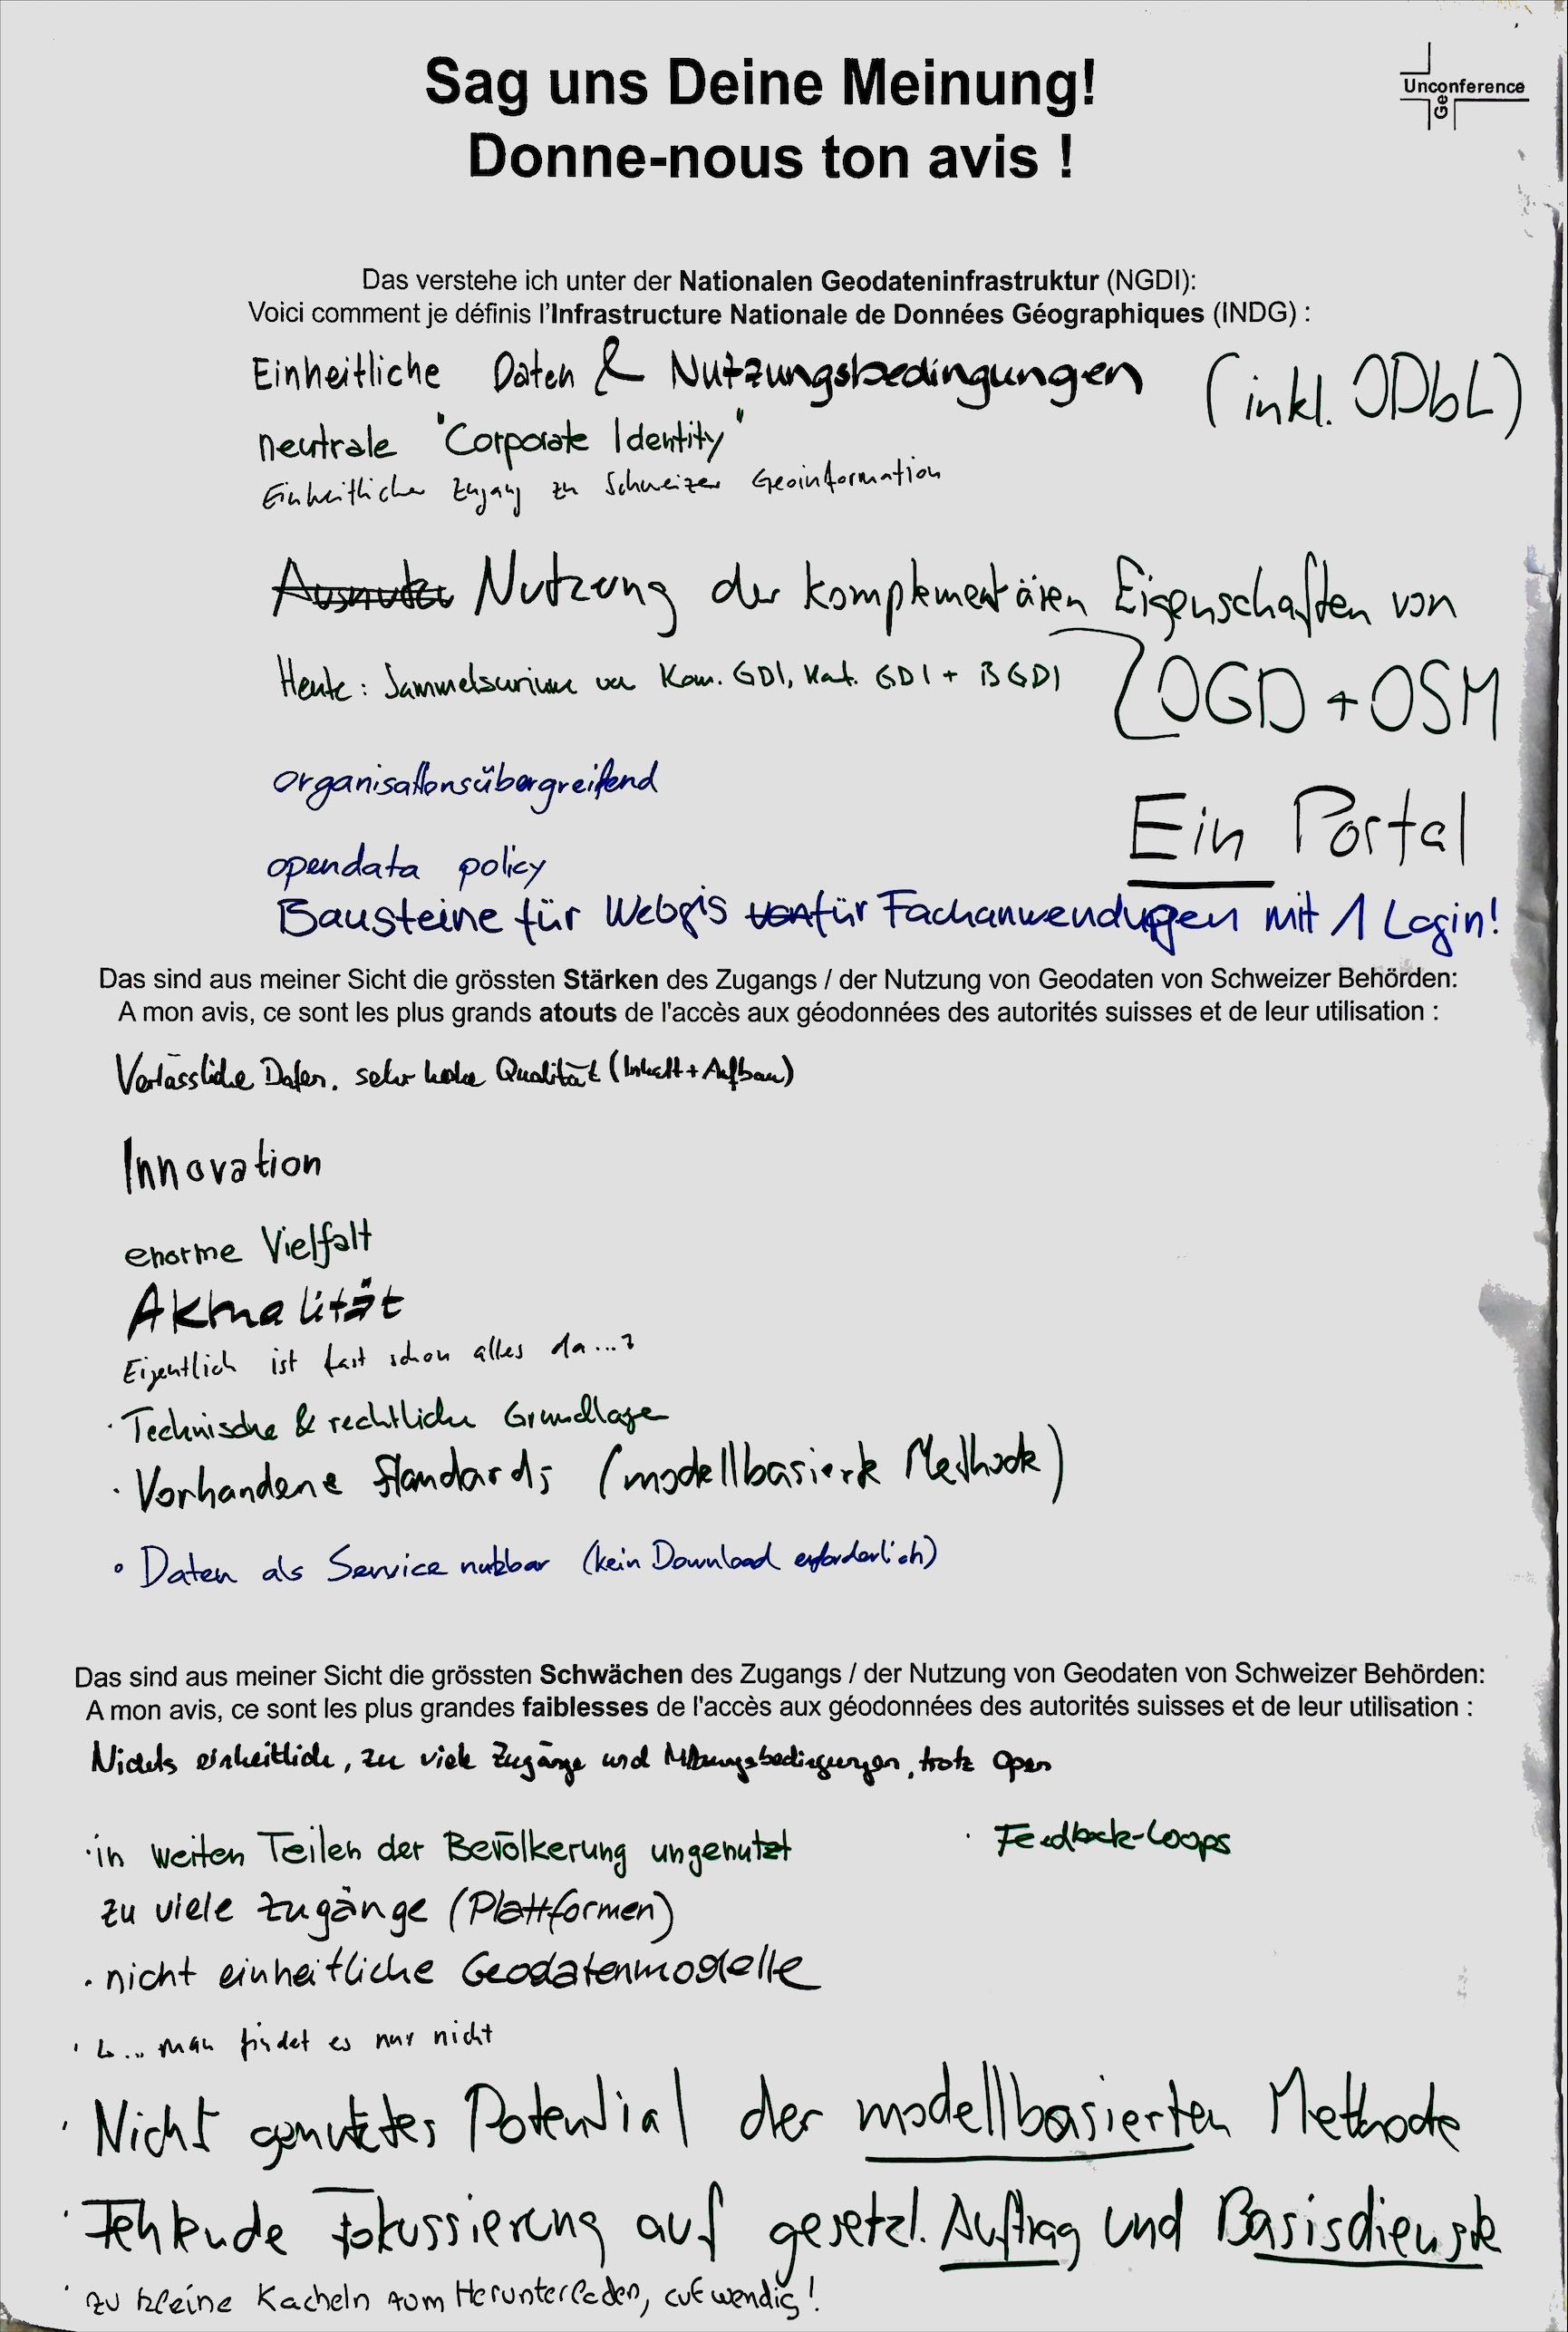 Sag uns Deine Meinung!
Donne-nous ton avis !
Unconference
Ge
Das verstehe ich unter der Nationalen Geodateninfrastruktur (NGDI):
Voici comment je définis l'Infrastructure Nationale de Données Géographiques (INDG) :
Einheitliche Daten & Nutzungsbedingungen (inkl. ODbL)
neutrale "Corporate Identity"
Einheitlicher Zugang zu Schweizer Geoinformation
Nutzung der komplementären Eigenschaften von
OGD + OSM
Heute: Sammelsurium von Kom. GDI, Kat. GDI + BGDI
organisationsübergreifend
Ein Portal
opendata policy
Bausteine für Webgis von für Fachanwendungen mit 1 Login!
Das sind aus meiner Sicht die grössten Stärken des Zugangs / der Nutzung von Geodaten von Schweizer Behörden:
A mon avis, ce sont les plus grands atouts de l'accès aux géodonnées des autorités suisses et de leur utilisation :
Verlässliche Daten. sehr hohe Qualität (Inhalt + Aufbau)
Innovation
enorme Vielfalt
Aktualität
Eigentlich ist fast schon alles da...
· Technische & rechtliche Grundlage
· Vorhandene Standards (modellbasierte Methode)
° Daten als Service nutzbar (kein Download erforderlich)
Das sind aus meiner Sicht die grössten Schwächen des Zugangs / der Nutzung von Geodaten von Schweizer Behörden:
A mon avis, ce sont les plus grandes faiblesses de l'accès aux géodonnées des autorités suisses et de leur utilisation :
Nichts einheitlich, zu viele Zugänge und Nutzungsbedingungen, trotz Open
· in weiten Teilen der Bevölkerung ungenutzt
· Feedback-Loops
zu viele Zugänge (Plattformen)
· nicht einheitliche Geodatenmodelle
· ↳ ... man findet es nur nicht
· Nicht genutztes Potential der modellbasierten Methode
· Fehlende Fokussierung auf gesetzl. Auftrag und Basisdienste
· zu kleine Kacheln zum Herunterladen, aufwendig!